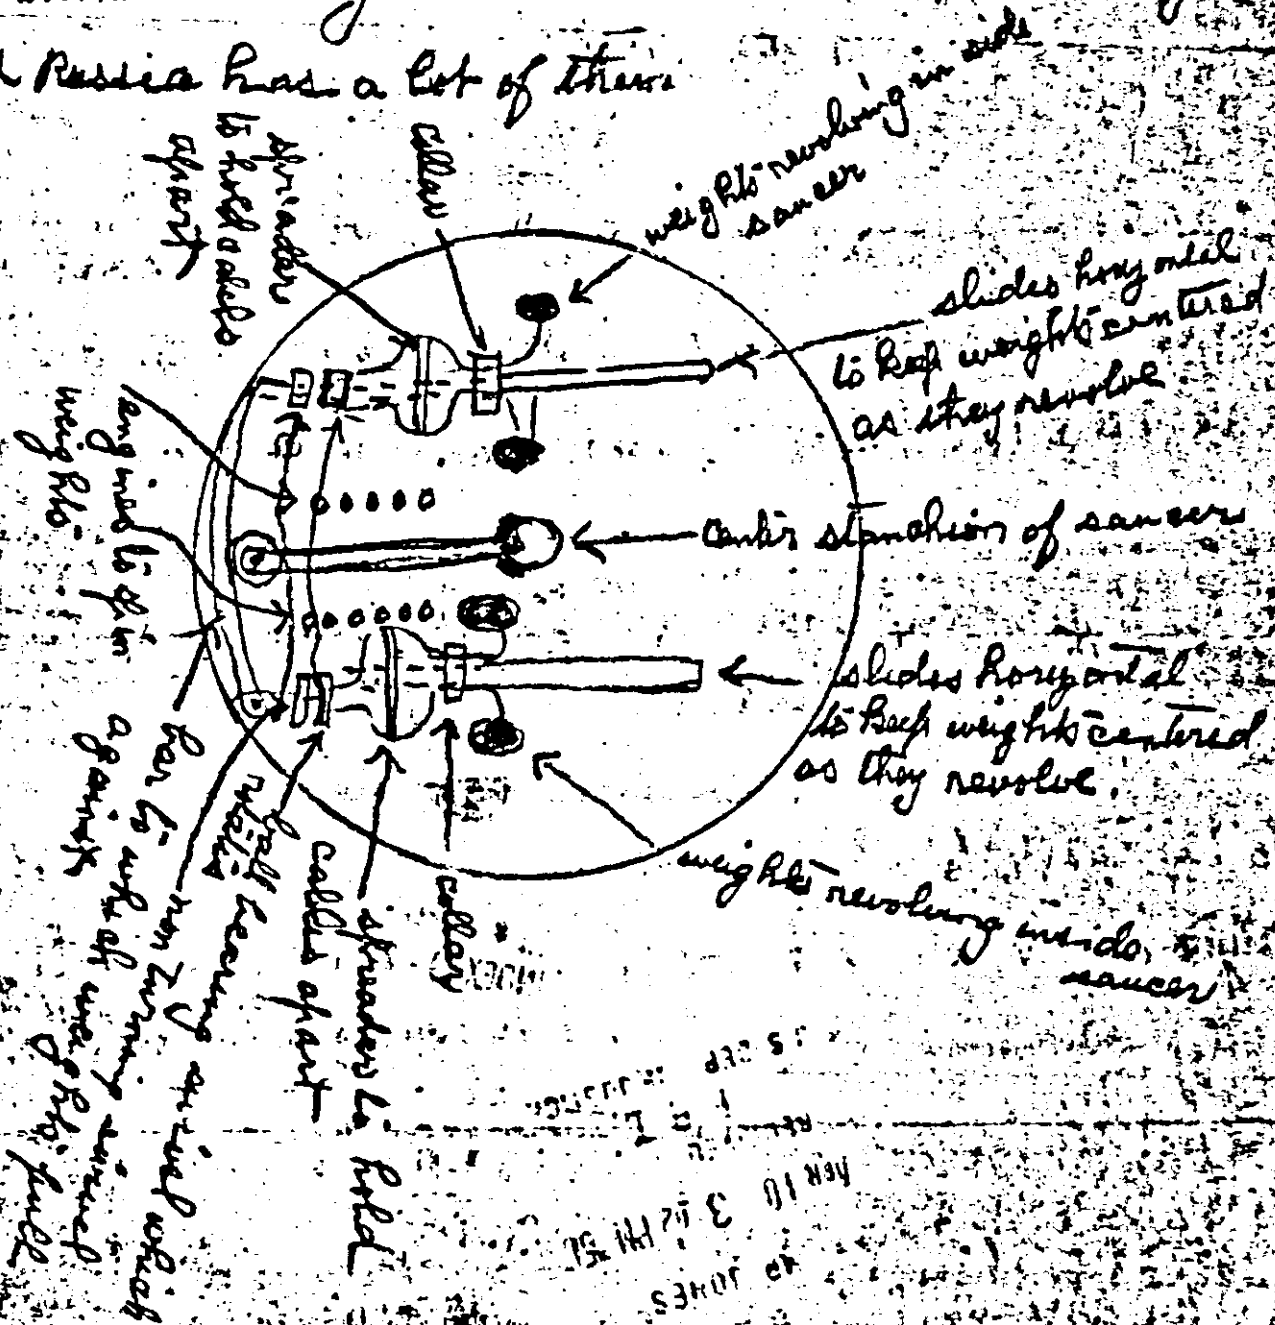 Russia has a lot of them.
collar
spreader
to hold cables
apart
weights revolving in side
saucer
slides horizontal
to keep weights centered
as they revolve
engines to spin
weights
center stanchion of saucer
slides horizontal
to keep weights centered
as they revolve.
weights revolving inside
saucer
collar
spreader to hold
cables apart
ball bearing
non turning
bar to which
weights pull
against